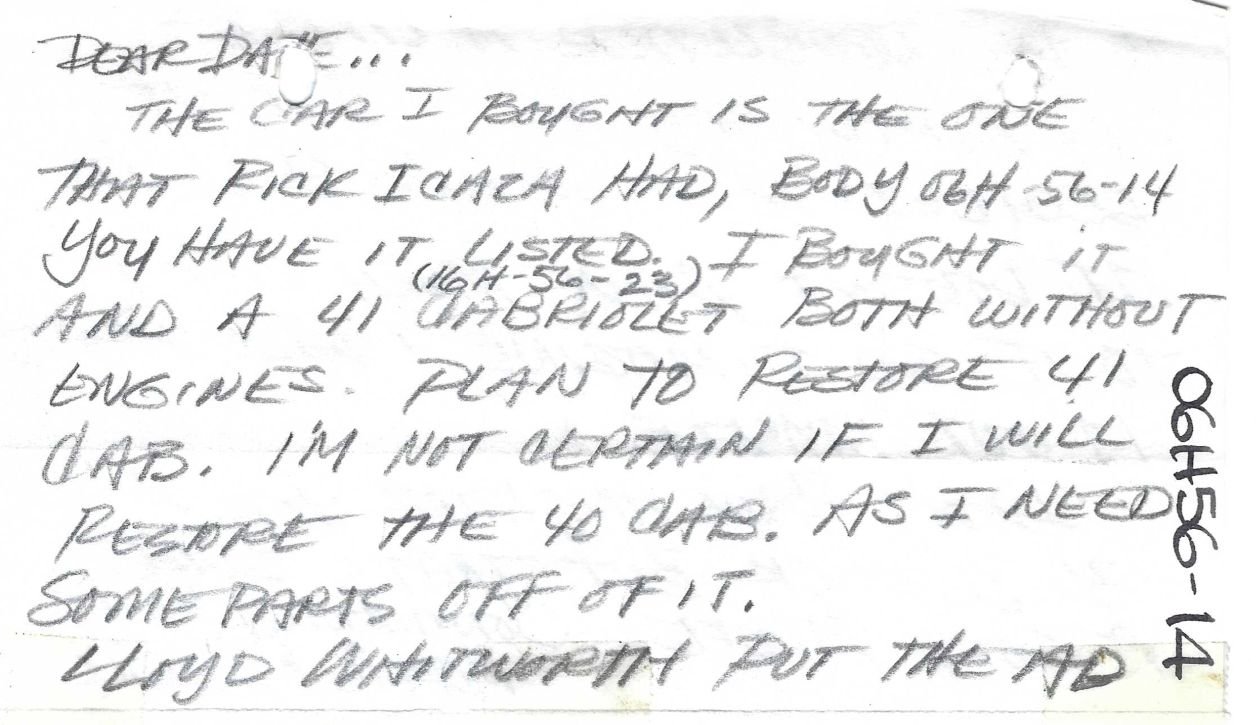 DEAR
THE CAR I BOUGHT IS THE ONE
THAT RICK ICAZA HAD, BODY 06H-56-14
YOU HAVE IT LISTED. I BOUGHT IT
(16H-56-23)
AND A 41 CABRIOLET BOTH WITHOUT
ENGINES. PLAN TO RESTORE 41
CAB. I'M NOT CERTAIN IF I WILL
RESTORE THE 40 CAB. AS I NEED
SOME PARTS OFF OF IT.
LLOYD WHITWORTH PUT THE AD
06H56-14